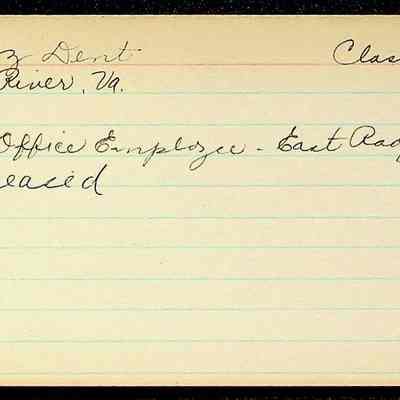 z Dent Clas
River, Va.
Office Employee - East Rad
eased